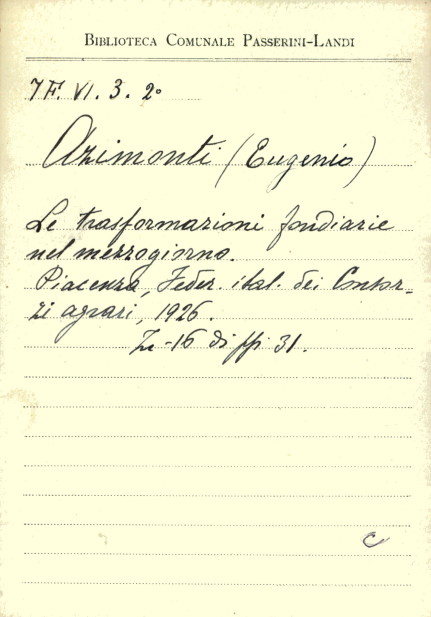 BIBLIOTECA COMUNALE PASSERINI-LANDI
7F. VI. 3. 2º
Azimonti (Eugenio)
Le trasformazioni fondiarie
nel mezzogiorno.
Piacenza, Feder. ital. dei Consor-
zi agrari, 1926.
-16 di pp 31.
C